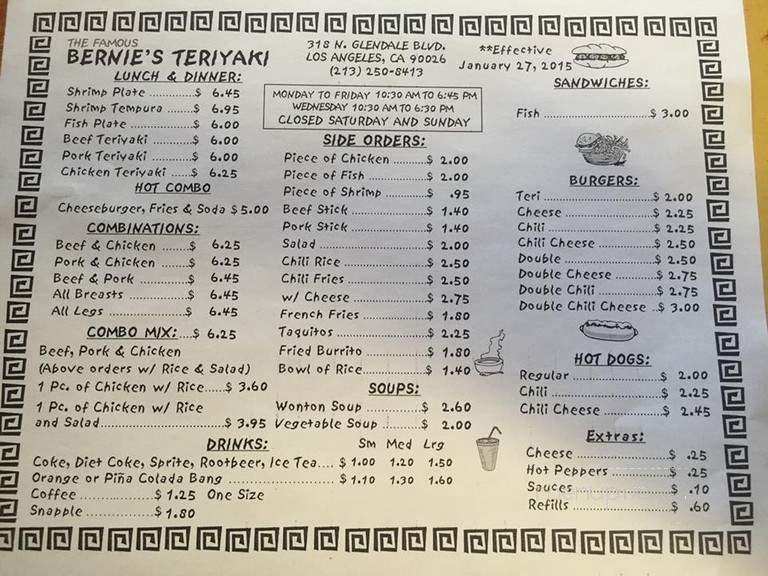 THE FAMOUS
BERNIE'S TERIYAKI
318 N. GLENDALE BLVD.
LOS ANGELES, CA 90026
(213) 250-8413
**Effective
January 27, 2015
MONDAY TO FRIDAY 10:30 AM TO 6:45 PM
WEDNESDAY 10:30 AM TO 6:30 PM
CLOSED SATURDAY AND SUNDAY
LUNCH & DINNER:
Shrimp Plate ............$ 6.45
Shrimp Tempura ......$ 6.95
Fish Plate ................$ 6.00
Beef Teriyaki ..........$ 6.00
Pork Teriyaki ..........$ 6.00
Chicken Teriyaki .....$ 6.25
HOT COMBO
Cheeseburger, Fries & Soda $ 5.00
COMBINATIONS:
Beef & Chicken .......$ 6.25
Pork & Chicken .......$ 6.25
Beef & Pork ............$ 6.45
All Breasts .............$ 6.45
All Legs .................$ 6.45
COMBO MIX:....$ 6.25
Beef, Pork & Chicken
(Above orders w/ Rice & Salad)
1 Pc. of Chicken w/ Rice.....$ 3.60
1 Pc. of Chicken w/ Rice
and Salad...........................$ 3.95
SIDE ORDERS:
Piece of Chicken ........$ 2.00
Piece of Fish ..............$ 2.00
Piece of Shrimp ..........$ .95
Beef Stick ..................$ 1.40
Pork Stick ..................$ 1.40
Salad .........................$ 2.00
Chili Rice ...................$ 2.50
Chili Fries ..................$ 2.50
w/ Cheese ..................$ 2.75
French Fries ..............$ 1.80
Taquitos .....................$ 2.25
Fried Burrito ..............$ 1.80
Bowl of Rice...............$ 1.40
SOUPS:
Wonton Soup .............$ 2.60
Vegetable Soup ..........$ 2.00
SANDWICHES:
Fish ...........................$ 3.00
BURGERS:
Teri ...........................$ 2.00
Cheese .......................$ 2.25
Chili ..........................$ 2.25
Chili Cheese ...............$ 2.50
Double .......................$ 2.50
Double Cheese ...........$ 2.75
Double Chili ...............$ 2.75
Double Chili Cheese ..$ 3.00
HOT DOGS:
Regular .....................$ 2.00
Chili ..........................$ 2.25
Chili Cheese ..............$ 2.45
Extras:
Cheese .......................$ .25
Hot Peppers ...............$ .25
Sauces .......................$ .10
Refills ........................$ .60
DRINKS: Sm Med Lrg
Coke, Diet Coke, Sprite, Rootbeer, Ice Tea.... $ 1.00 1.20 1.50
Orange or Piña Colada Bang ......................... $ 1.10 1.30 1.60
Coffee ...............$ 1.25 One Size
Snapple ..............$ 1.80